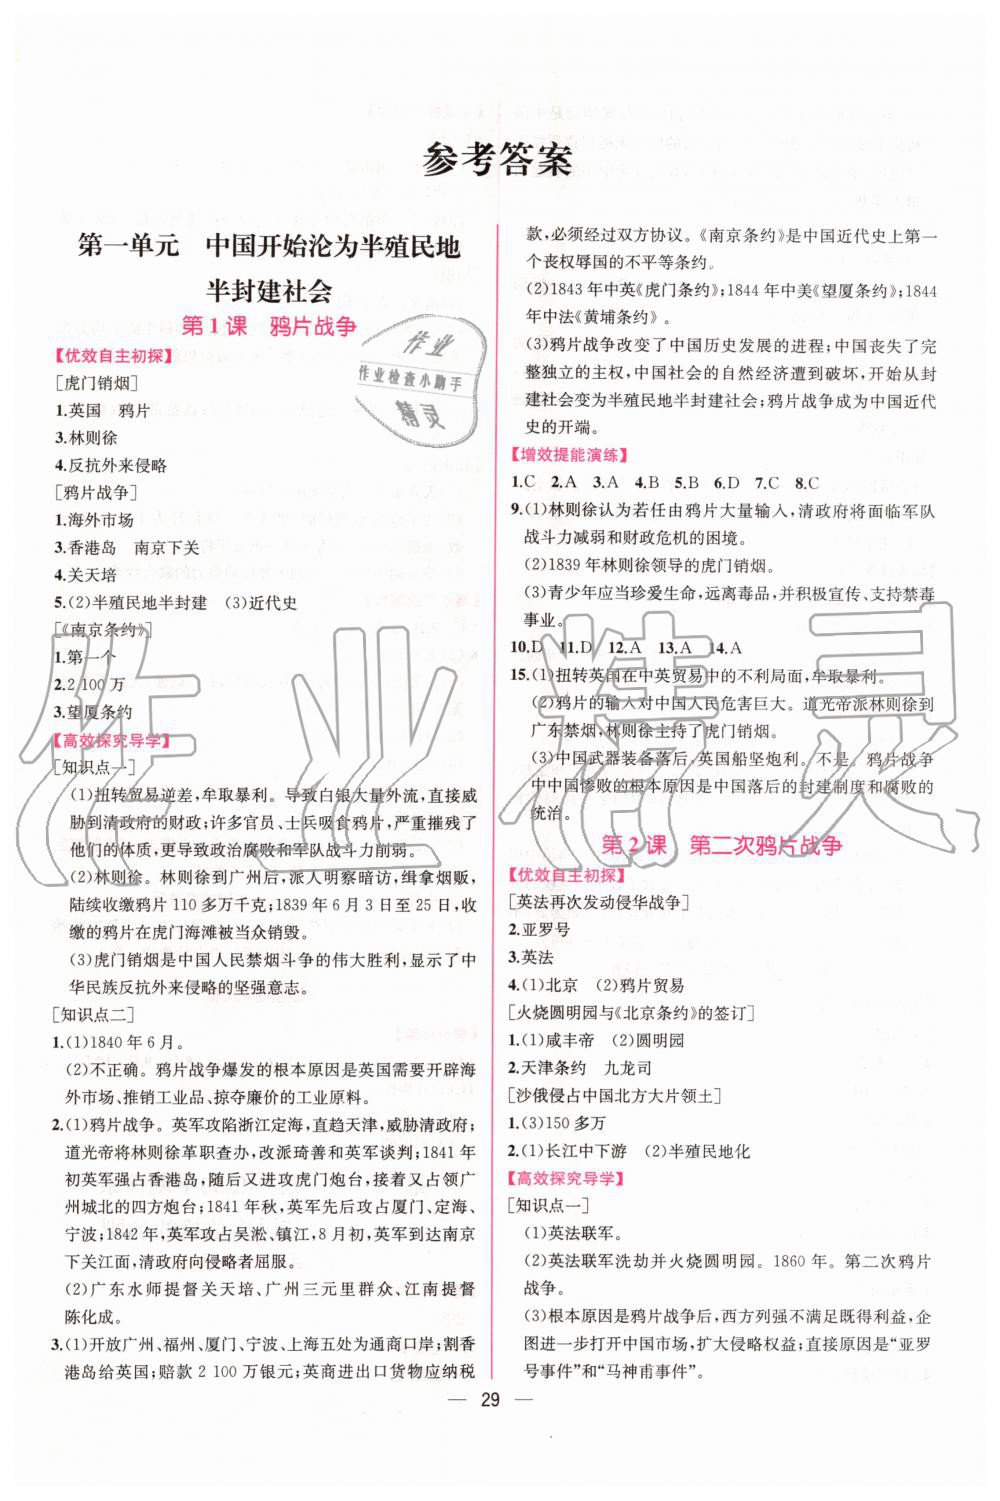 参考答案
第一单元　中国开始沦为半殖民地
半封建社会
第 1 课　鸦片战争
【优效自主初探】
[虎门销烟]
1.英国　鸦片
3.林则徐
4.反抗外来侵略
[鸦片战争]
1.海外市场
3.香港岛　南京下关
4.关天培
5.(2)半殖民地半封建　(3)近代史
[《南京条约》]
1.第一个
2.2 100 万
3.望厦条约
【高效探究导学】
[知识点一]
(1)扭转贸易逆差,牟取暴利。导致白银大量外流,直接威
胁到清政府的财政;许多官员、士兵吸食鸦片,严重摧残了
他们的体质,更导致政治腐败和军队战斗力削弱。
(2)林则徐。林则徐到广州后,派人明察暗访,缉拿烟贩,
陆续收缴鸦片 110 多万千克;1839 年 6 月 3 日至 25 日,收
缴的鸦片在虎门海滩被当众销毁。
(3)虎门销烟是中国人民禁烟斗争的伟大胜利,显示了中
华民族反抗外来侵略的坚强意志。
[知识点二]
1.(1)1840 年 6 月。
(2)不正确。鸦片战争爆发的根本原因是英国需要开辟海
外市场、推销工业品、掠夺廉价的工业原料。
2.(1)鸦片战争。英军攻陷浙江定海,直趋天津,威胁清政府;
道光帝将林则徐革职查办,改派琦善和英军谈判;1841 年
初英军强占香港岛,随后又进攻虎门炮台,接着又占领广
州城北的四方炮台;1841 年秋,英军先后攻占厦门、定海、
宁波;1842 年,英军攻占吴淞、镇江,8 月初,英军到达南京
下关江面,清政府向侵略者屈服。
(2)广东水师提督关天培、广州三元里群众、江南提督
陈化成。
3.(1)开放广州、福州、厦门、宁波、上海五处为通商口岸;割香
港岛给英国;赔款 2 100 万银元;英商进出口货物应纳税
款,必须经过双方协议。《南京条约》是中国近代史上第一
个丧权辱国的不平等条约。
(2)1843 年中英《虎门条约》;1844 年中美《望厦条约》;1844
年中法《黄埔条约》。
(3)鸦片战争改变了中国历史发展的进程;中国丧失了完
整独立的主权,中国社会的自然经济遭到破坏,开始从封
建社会变为半殖民地半封建社会;鸦片战争成为中国近代
史的开端。
【增效提能演练】
1.C　2.A　3.A　4.B　5.B　6.D　7.C　8.C
9.(1)林则徐认为若任由鸦片大量输入,清政府将面临军队
战斗力减弱和财政危机的困境。
(2)1839 年林则徐领导的虎门销烟。
(3)青少年应当珍爱生命,远离毒品,并积极宣传、支持禁毒
事业。
10.D　11.D　12.A　13.A　14.A
15.(1)扭转英国在中英贸易中的不利局面,牟取暴利。
(2)鸦片的输入对中国人民危害巨大。道光帝派林则徐到
广东禁烟,林则徐主持了虎门销烟。
(3)中国武器装备落后,英国船坚炮利。不是。鸦片战争
中中国惨败的根本原因是中国落后的封建制度和腐败的
统治。
第 2 课　第二次鸦片战争
【优效自主初探】
[英法再次发动侵华战争]
2.亚罗号
3.英法
4.(1)北京　(2)鸦片贸易
[火烧圆明园与《北京条约》的签订]
1.(1)咸丰帝　(2)圆明园
2.天津条约　九龙司
[沙俄侵占中国北方大片领土]
1.(3)150 多万
2.(1)长江中下游　(2)半殖民地化
【高效探究导学】
[知识点一]
(1)英法联军。
(2)英法联军洗劫并火烧圆明园。1860 年。第二次鸦片
战争。
(3)根本原因是鸦片战争后,西方列强不满足既得利益,企
图进一步打开中国市场,扩大侵略权益;直接原因是“亚罗
号事件”和“马神甫事件”。
— 29 —
作业
作业检查小助手
精灵
作业精灵